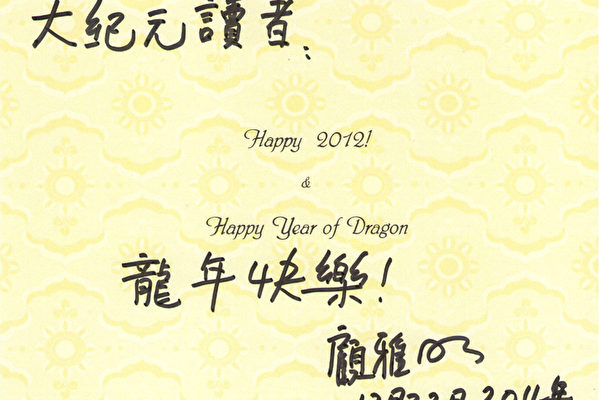 大紀元讀者:
Happy 2012!
&
Happy Year of Dragon
龍年快樂!
顧雅明
12月22日2011年